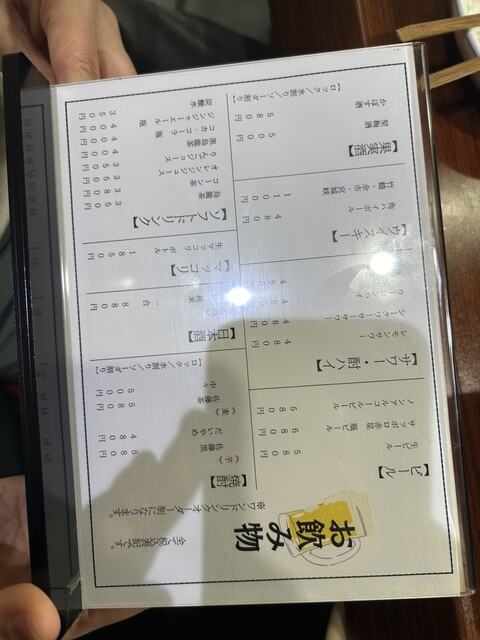 お飲み物
※ワンドリンクオーダー制になります。
全て税込表記です。
【ビール】
生ビール 580円
サッポロ赤星 瓶ビール 680円
ノンアルコールビール 580円
【サワー・酎ハイ】
レモンサワー 480円
シークワーサーサワー 480円
ウーロンハイ
【ウイスキー】
角ハイボール 480円
竹鶴・余市・宮城峡 1100円
【果実酒】
梅酒 500円
かぼす酒 580円
【ロック/水割り/ソーダ割り】
【焼酎】
《芋》
佐藤黒 580円
だいやめ 480円
《麦》
佐藤 580円
中々 500円
【ロック/水割り/ソーダ割り】
【日本酒】
純米 一合 880円
【マッコリ】
生マッコリ ボトル 1580円
【ソフトドリンク】
烏龍茶 350円
コーン茶 380円
オレンジジュース 350円
りんごジュース 350円
黒烏龍茶 400円
コカコーラ 瓶 400円
ジンジャエール 瓶 400円
炭酸水 350円